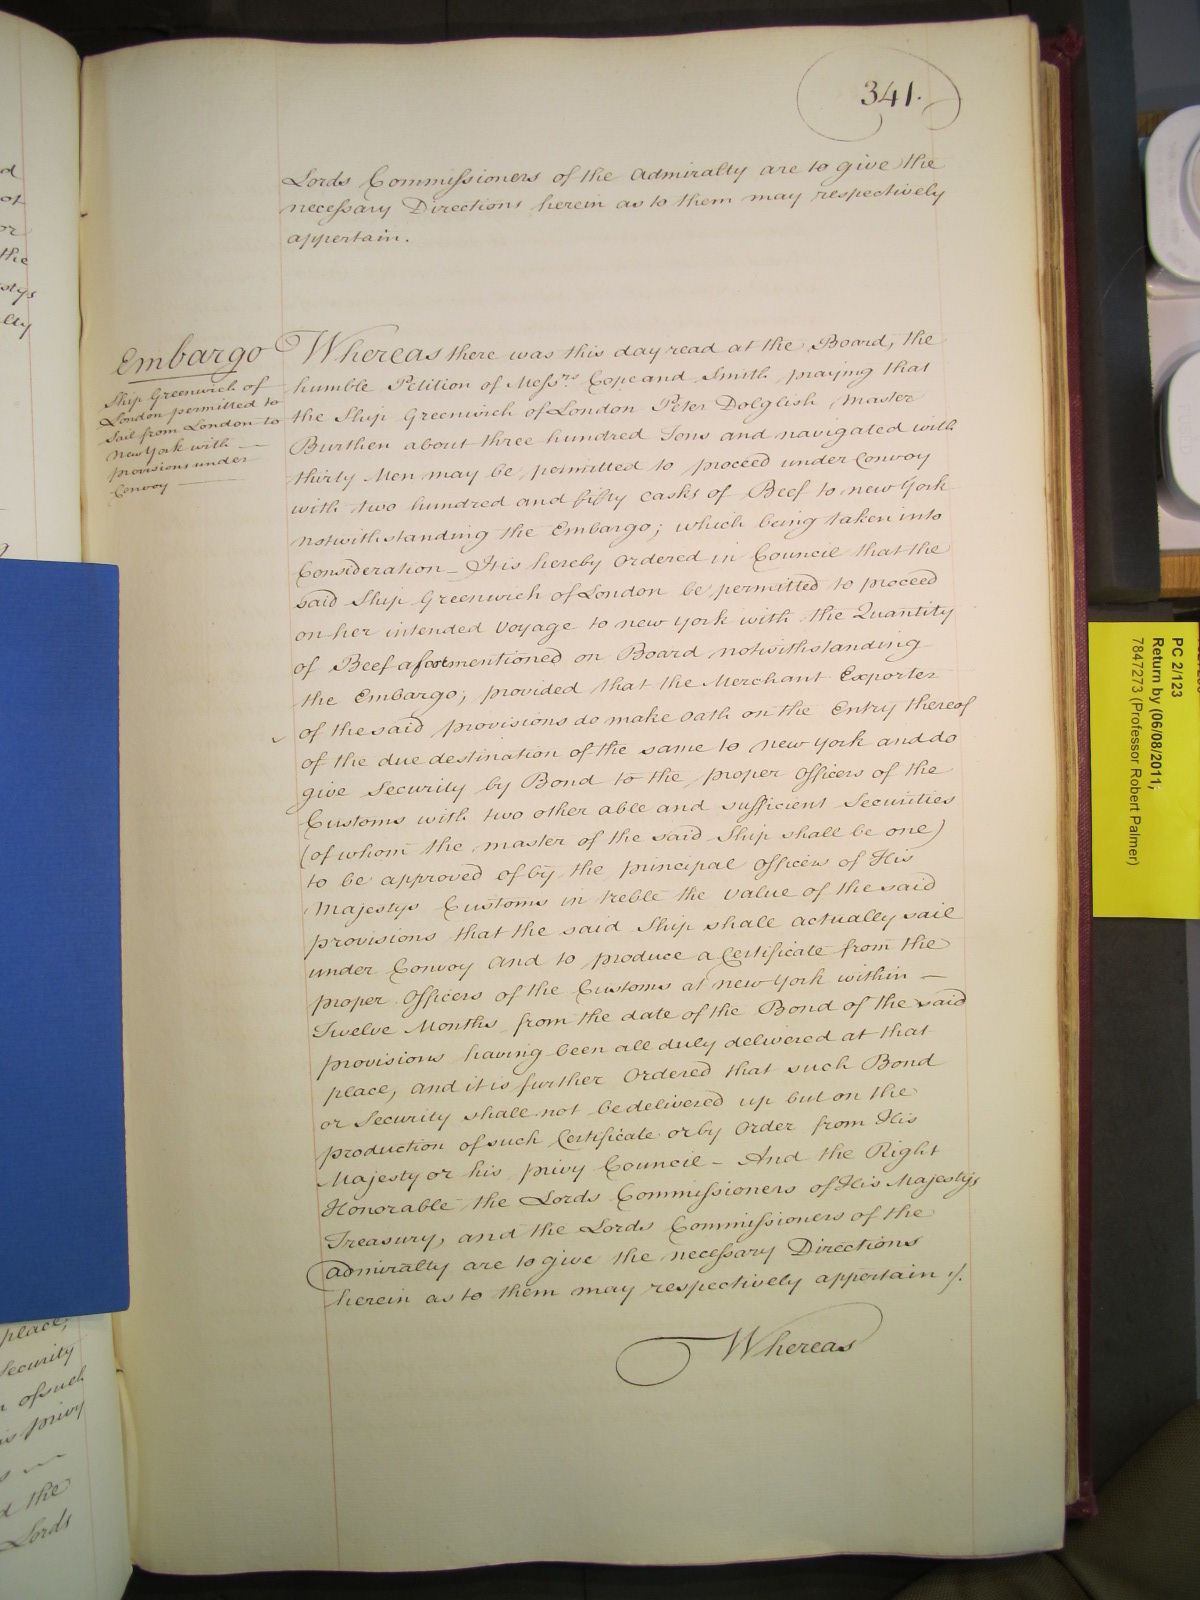 341.
Lords Commissioners of the Admiralty are to give the
necessary Directions herein as to them may respectively
appertain.
Embargo
Ship Greenwich of
London permitted to
sail from London to
New York with —
provisions under
Convoy —
Whereas there was this day read at the Board, the
humble Petition of Messrs Cope and Smith praying that
the Ship Greenwich of London Peter Dolglish Master
Burthen about three hundred Tons and navigated with
thirty Men may be permitted to proceed under Convoy
with two hundred and fifty Casks of Beef to new York
notwithstanding the Embargo; which being taken into
Consideration _ It is hereby Ordered in Council that the
said Ship Greenwich of London be permitted to proceed
on her intended Voyage to new york with the Quantity
of Beef aforementioned on Board notwithstanding
the Embargo; provided that the Merchant Exporter
of the said provisions do make Oath on the Entry thereof
of the due destination of the same to new york and do
give Security by Bond to the proper Officers of the
Customs with two other able and sufficient Securities
(of whom the master of the said Ship shall be one)
to be approved of by the principal Officers of His
Majestys Customs in treble the value of the said
provisions that the said Ship shall actually sail
under Convoy and to produce a Certificate from the
proper Officers of the Customs at new York within —
Twelve Months from the date of the Bond of the said
provisions having been all duly delivered at that
place, and it is further Ordered that such Bond
or Security shall not be delivered up but on the
production of such Certificate or by Order from His
Majesty or his privy Council - And the Right
Honorable the Lords Commissioners of His Majestys
Treasury, and the Lords Commissioners of the
Admiralty are to give the necessary Directions
herein as to them may respectively appertain ./.
Whereas
PC 2/123
Return by (06/08/2011;
7847273 (Professor Robert Palmer)
the
place;
Security
of such
privy
the
Lords